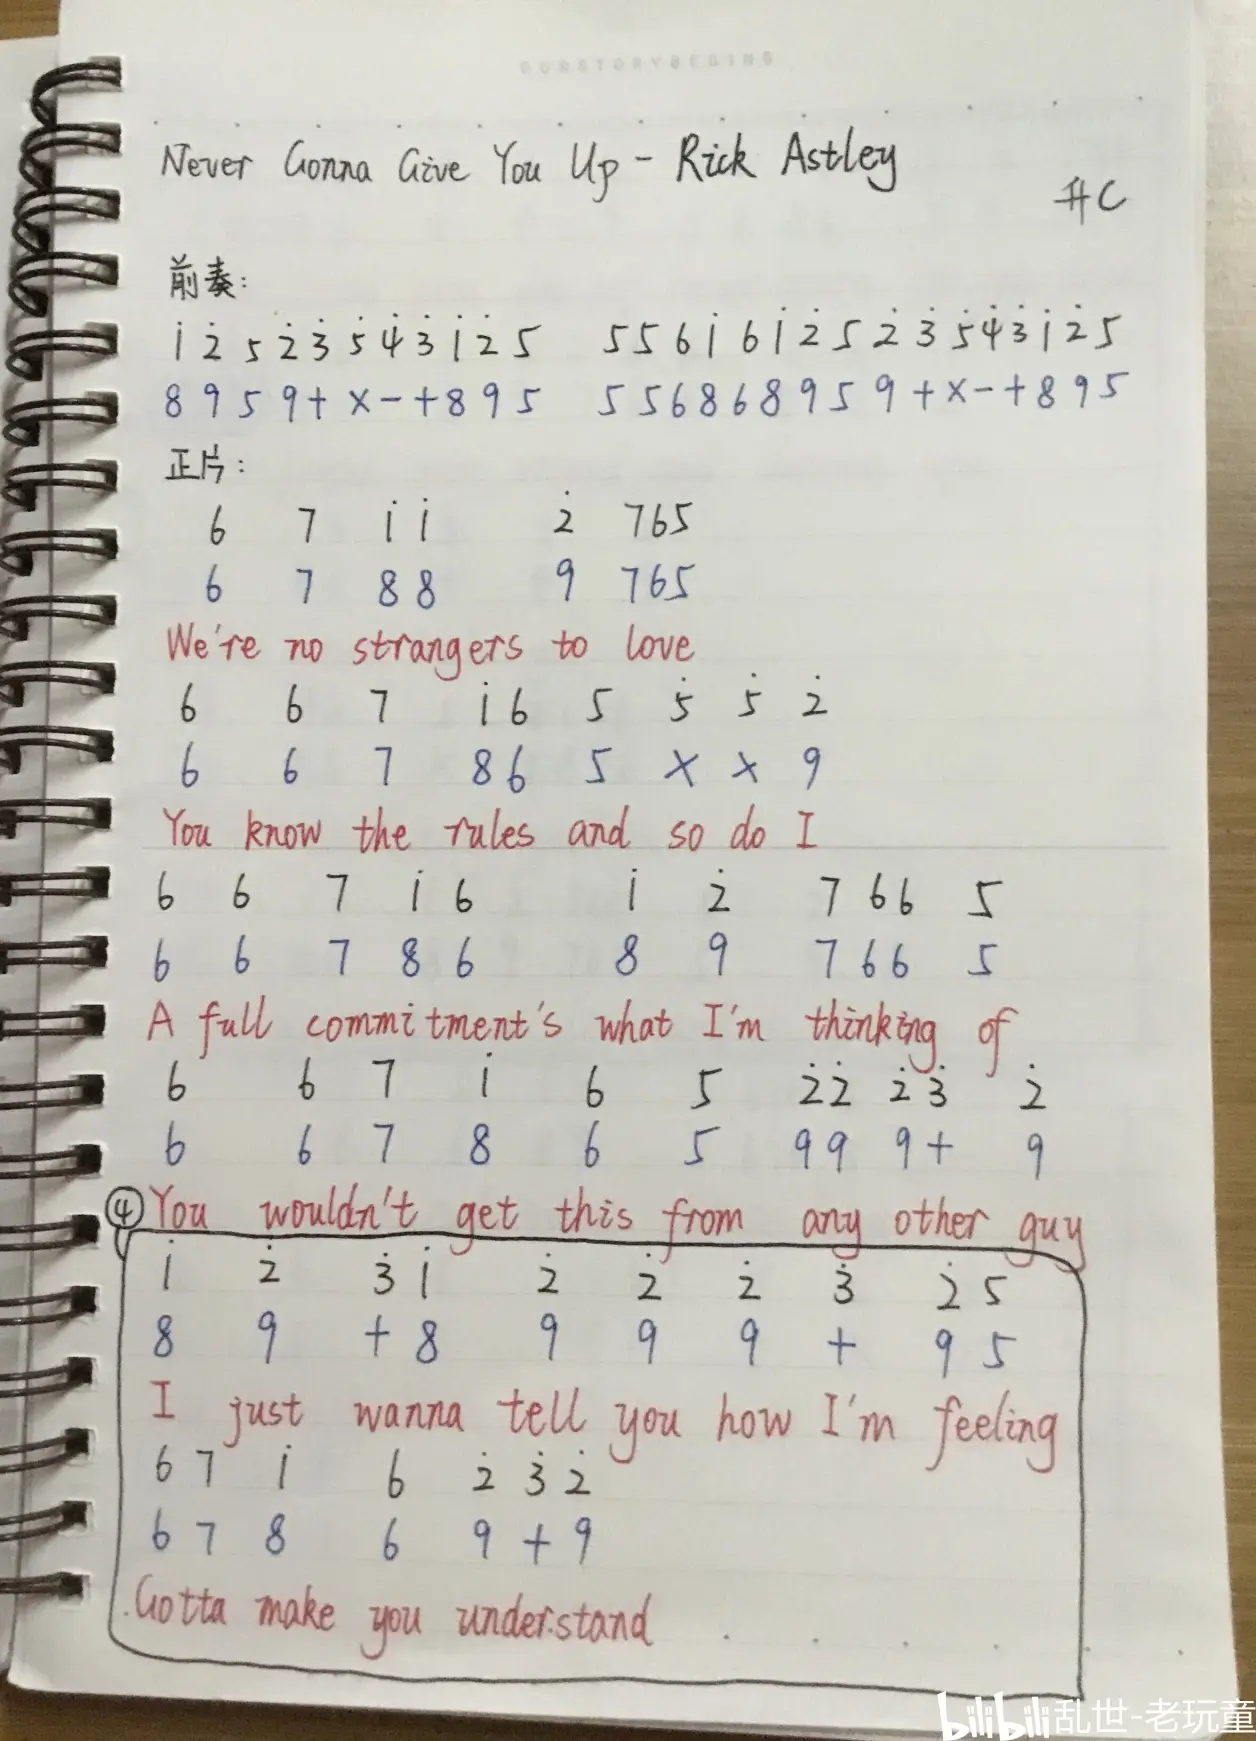 OURSTORYBEGINS
Never Gonna Give You Up - Rick Astley
升C
前奏:
i 2̇ 5 2̇ 3̇ 5̇ 4̇ 3̇ i 2̇ 5 5 5 6 i 6 i 2̇ 5 2̇ 3̇ 5̇ 4̇ 3̇ i 2̇ 5
8 9 5 9 + × - + 8 9 5 5 5 6 8 6 8 9 5 9 + × - + 8 9 5
正片:
6 7 i i 2̇ 7 6 5
6 7 8 8 9 7 6 5
We're no strangers to love
6 6 7 i 6 5 5̇ 5̇ 2̇
6 6 7 8 6 5 × × 9
You know the rules and so do I
6 6 7 i 6 i 2̇ 7 6 6 5
6 6 7 8 6 8 9 7 6 6 5
A full commitment's what I'm thinking of
6 6 7 i 6 5 2̇ 2̇ 2̇ 3̇ 2̇
6 6 7 8 6 5 9 9 9 + 9
④ You wouldn't get this from any other guy
i 2̇ 3̇ i 2̇ 2̇ 2̇ 3̇ 2̇ 5
8 9 + 8 9 9 9 + 9 5
I just wanna tell you how I'm feeling
6 7 i 6 2̇ 3̇ 2̇
6 7 8 6 9 + 9
Gotta make you understand
bilibili 乱世-老玩童